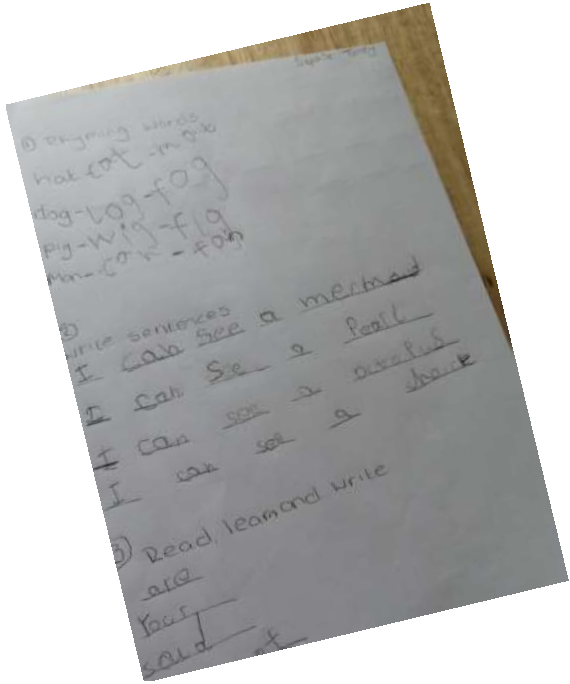 ① Rhyming words
hat cot -
dog-Log-fog
pig-wig-fig
Man-can-fan
②
write sentences
I can see a mermad
I can See a Pearl
I can see a octopus
I can see a shark
③ Read, learn and write
are
Your
said at